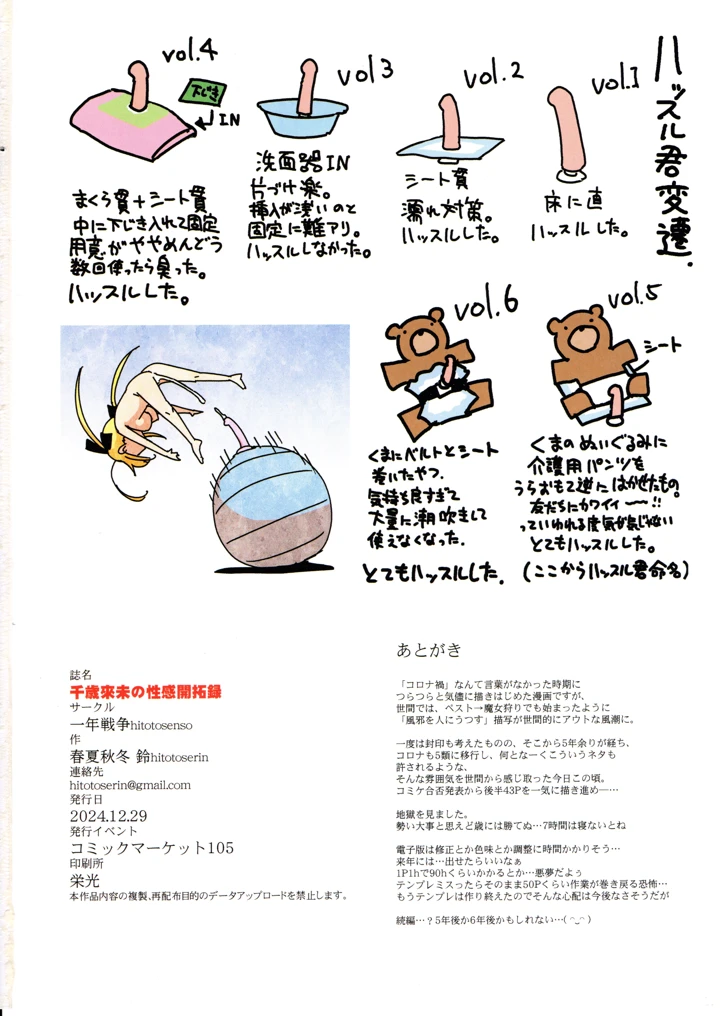 ハッスル君変遷.
vol.1
床に直
ハッスルした。
vol.2
シート貫
濡れ対策。
ハッスルした。
vol3
洗面器IN
片づけ楽。
挿入が浅いのと
固定に難アリ。
ハッスルしなかった。
vol.4
下じき
IN
まくら貫+シート貫
中に下じき入れて固定
用意がややめんどう
数回使ったら臭った。
ハッスルした。
vol.5
シート
くまのぬいぐるみに
介護用パンツを
うらおもて逆にはかせたもの。
友だちにカワイイ〜〜!!
っていわれる度気が気じゃない
とてもハッスルした。
(ここからハッスル君命名)
vol.6
くまにベルトとシート
巻いたやつ.
気持ち良すぎて
大量に潮吹きして
使えなくなった.
とてもハッスルした.
誌名
千歳來未の性感開拓録
サークル
一年戦争hitotosenso
作
春夏秋冬 鈴hitotoserin
連絡先
hitotoserin@gmail.com
発行日
2024.12.29
発行イベント
コミックマーケット105
印刷所
栄光
本作品内容の複製、再配布目的のデータアップロードを禁止します。
あとがき
「コロナ禍」なんて言葉がなかった時期に
つらつらと気儘に描きはじめた漫画ですが、
世間では、ペスト→魔女狩りでも始まったように
「風邪を人にうつす」描写が世間的にアウトな風潮に。
一度は封印も考えたものの、そこから5年余りが経ち、
コロナも5類に移行し、何となーくこういうネタも
許されるような、
そんな雰囲気を世間から感じ取った今日この頃。
コミケ合否発表から後半43Pを一気に描き進め―…
地獄を見ました。
勢い大事と思えど歳には勝てぬ…7時間は寝ないとね
電子版は修正とか色味とか調整に時間かかりそう…
来年には…出せたらいいなぁ
1P1hで90hくらいかかるとか…悪夢だよぅ
テンプレミスったらそのまま50Pくらい作業が巻き戻る恐怖…
もうテンプレは作り終えたのでそんな心配は今後なさそうだが
続編…?5年後か6年後かもしれない…(^_^)